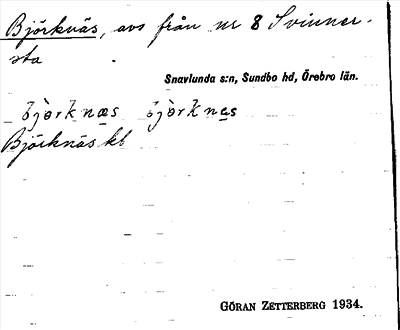 Björknäs, avs från nr 8 Svinner-
sta
Snavlunda s:n, Sundbo hd, Örebro län.
bjòrknæs bjòrknęs
Björknäs kl
GÖRAN ZETTERBERG 1934.